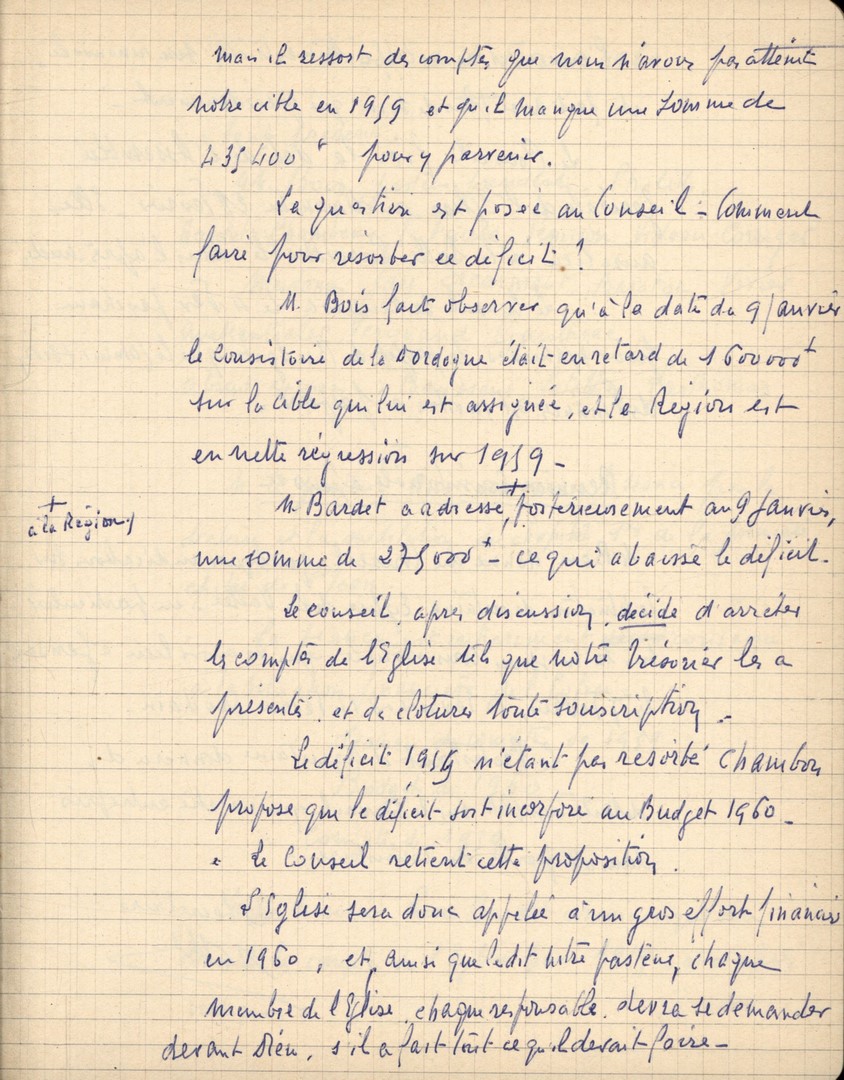 mais il ressort des comptes que nous n'avons pas atteint
notre cible en 1959 et qu'il manque une somme de
435400 f pour y parvenir.
La question est posée au Conseil - Comment
faire pour résorber ce déficit ?
M. Bois fait observer qu'à la date du 9 Janvier
le Consistoire de la Dordogne était en retard de 1600000 f
sur la cible qui lui est assignée, et la Région est
en nette régression sur 1959 -
M. Bardet a adressé + postérieusement au 9 Janvier,
+
à la Région
une somme de 275000 f - ce qui a baissé le déficit.
Le conseil, après discussion, décide d'arrêter
les comptes de l'Eglise tels que notre Trésorier les a
présentés, et de cloturer toute souscription.-
Le déficit 1959 n'étant pas resorbé Chambon
propose que le déficit soit incorporé au Budget 1960 -
Le Conseil retient cette proposition.
L'Eglise sera donc appelée à un gros effort financier
en 1960, et, ainsi que le dit notre pasteur, chaque
membre de l'Eglise, chaque responsable, devra se demander
devant Dieu, s'il a fait tout ce qu'il devait faire -